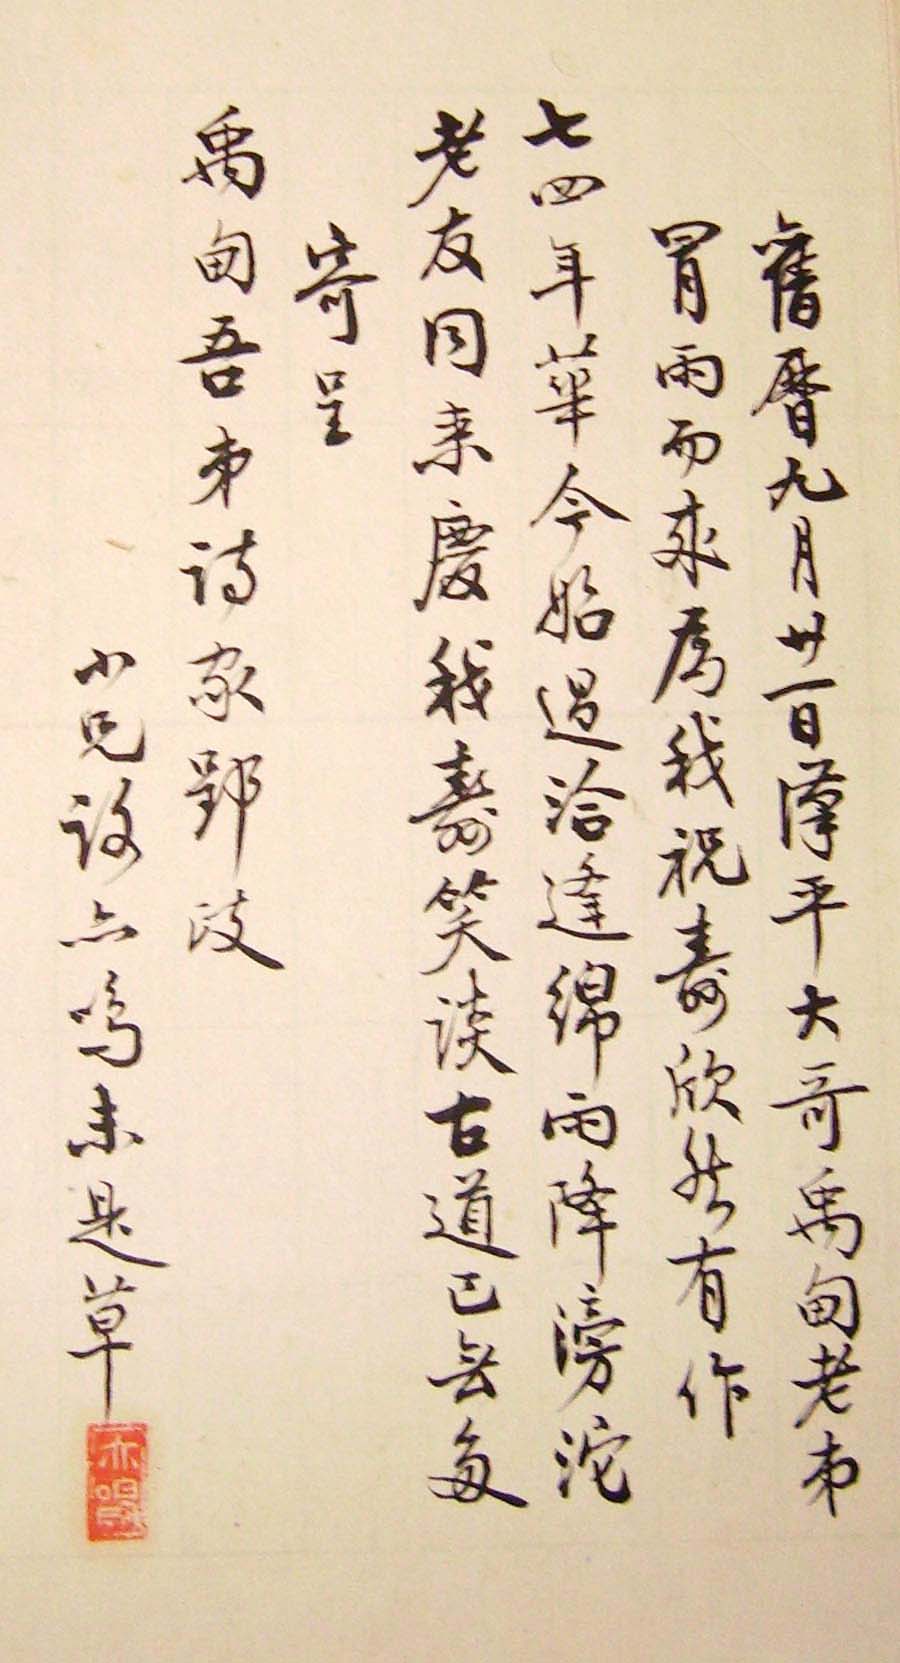 舊曆九月廿一日漢平大哥禹甸老弟
冒雨而來為我祝壽欣然有作
七四年華今始過洽逢綿雨降滂沱
老友同来慶我壽笑談古道已無多
寄呈
禹甸吾弟詩家郢政
小兄亦鳴未是草
亦鳴